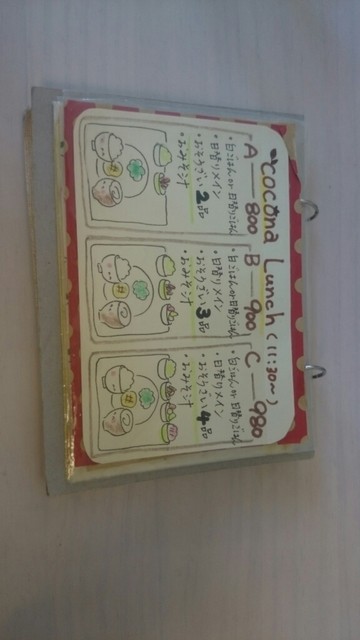 cocona Lunch (11:30~)
A—800
・白ごはんor日替りごはん
・日替りメイン
・おそうざい2品
・おみそ汁
B—900
・白ごはんor日替りごはん
・日替りメイン
・おそうざい3品
・おみそ汁
C—980
・白ごはんor日替りごはん
・日替りメイン
・おそうざい4品
・おみそ汁